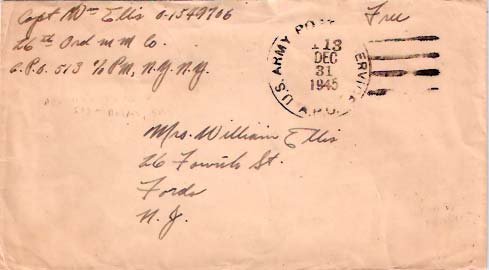 Capt Wm Ellis O-1549706
Free
26th Ord M M Co.
A.P.O. 513 % PM, N.Y. N.Y.
U.S. ARMY POSTAL SERVICE
A.P.O.
13
DEC
31
1945
Mrs. William Ellis
26 Fourth St.
Fords
N. J.